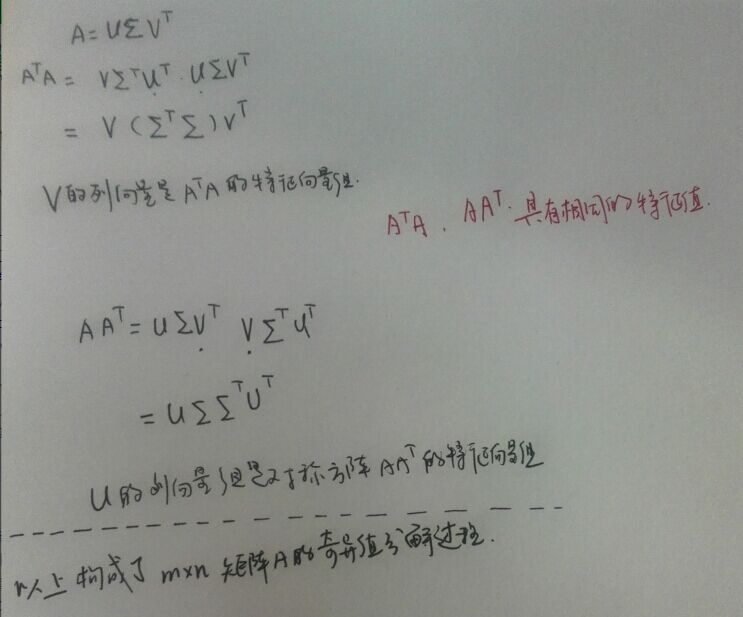 A = UΣV^T
A^TA = VΣ^TU^T · UΣV^T
= V(Σ^TΣ)V^T
V的列向量是A^TA的特征向量组.
A^TA . AA^T. 具有相同的特征值.
AA^T = UΣV^T VΣ^TU^T
= UΣΣ^TU^T
U的列向量组是对称方阵AA^T的特征向量组
以上构成了m×n矩阵A的奇异值分解过程.